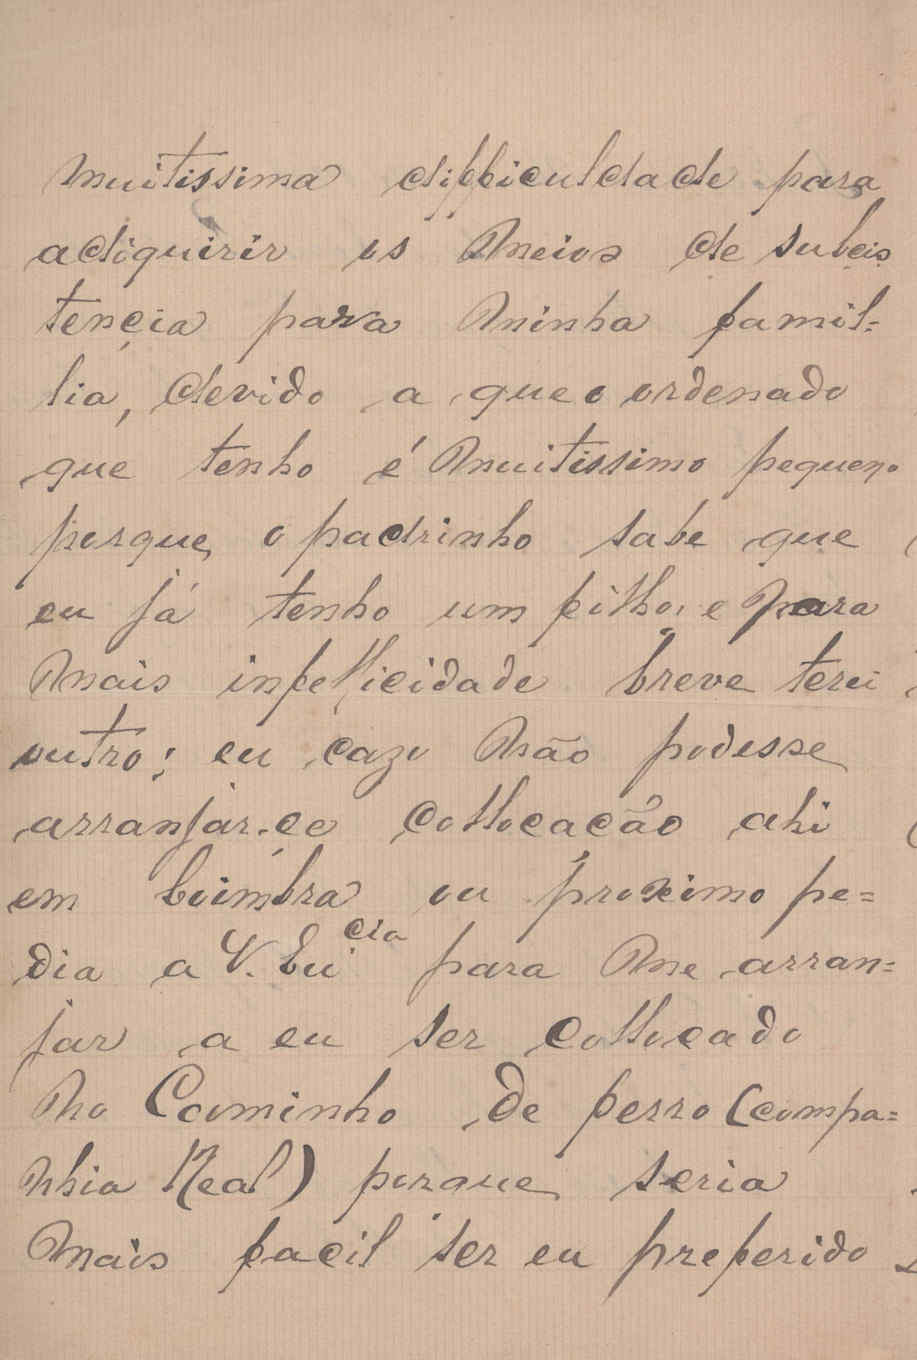 muitissima difficuldade para
adiquirir os meios de subcis
tencia para minha famil=
lia, devido a que o ordenado
que tenho é muitissimo pequeno
porque, o padrinho sabe que
eu já tenho um filho, e para
mais infellicidade breve terei
outro; eu cazo não podesse
arranjar-ce collocacão ahi
em Coimbra ou proximo pe=
dia a V. Eu cia para me arran=
jar a eu ser collocado
no Caminho de ferro (compa=
nhia Real) porque seria
mais facil ser eu preferido